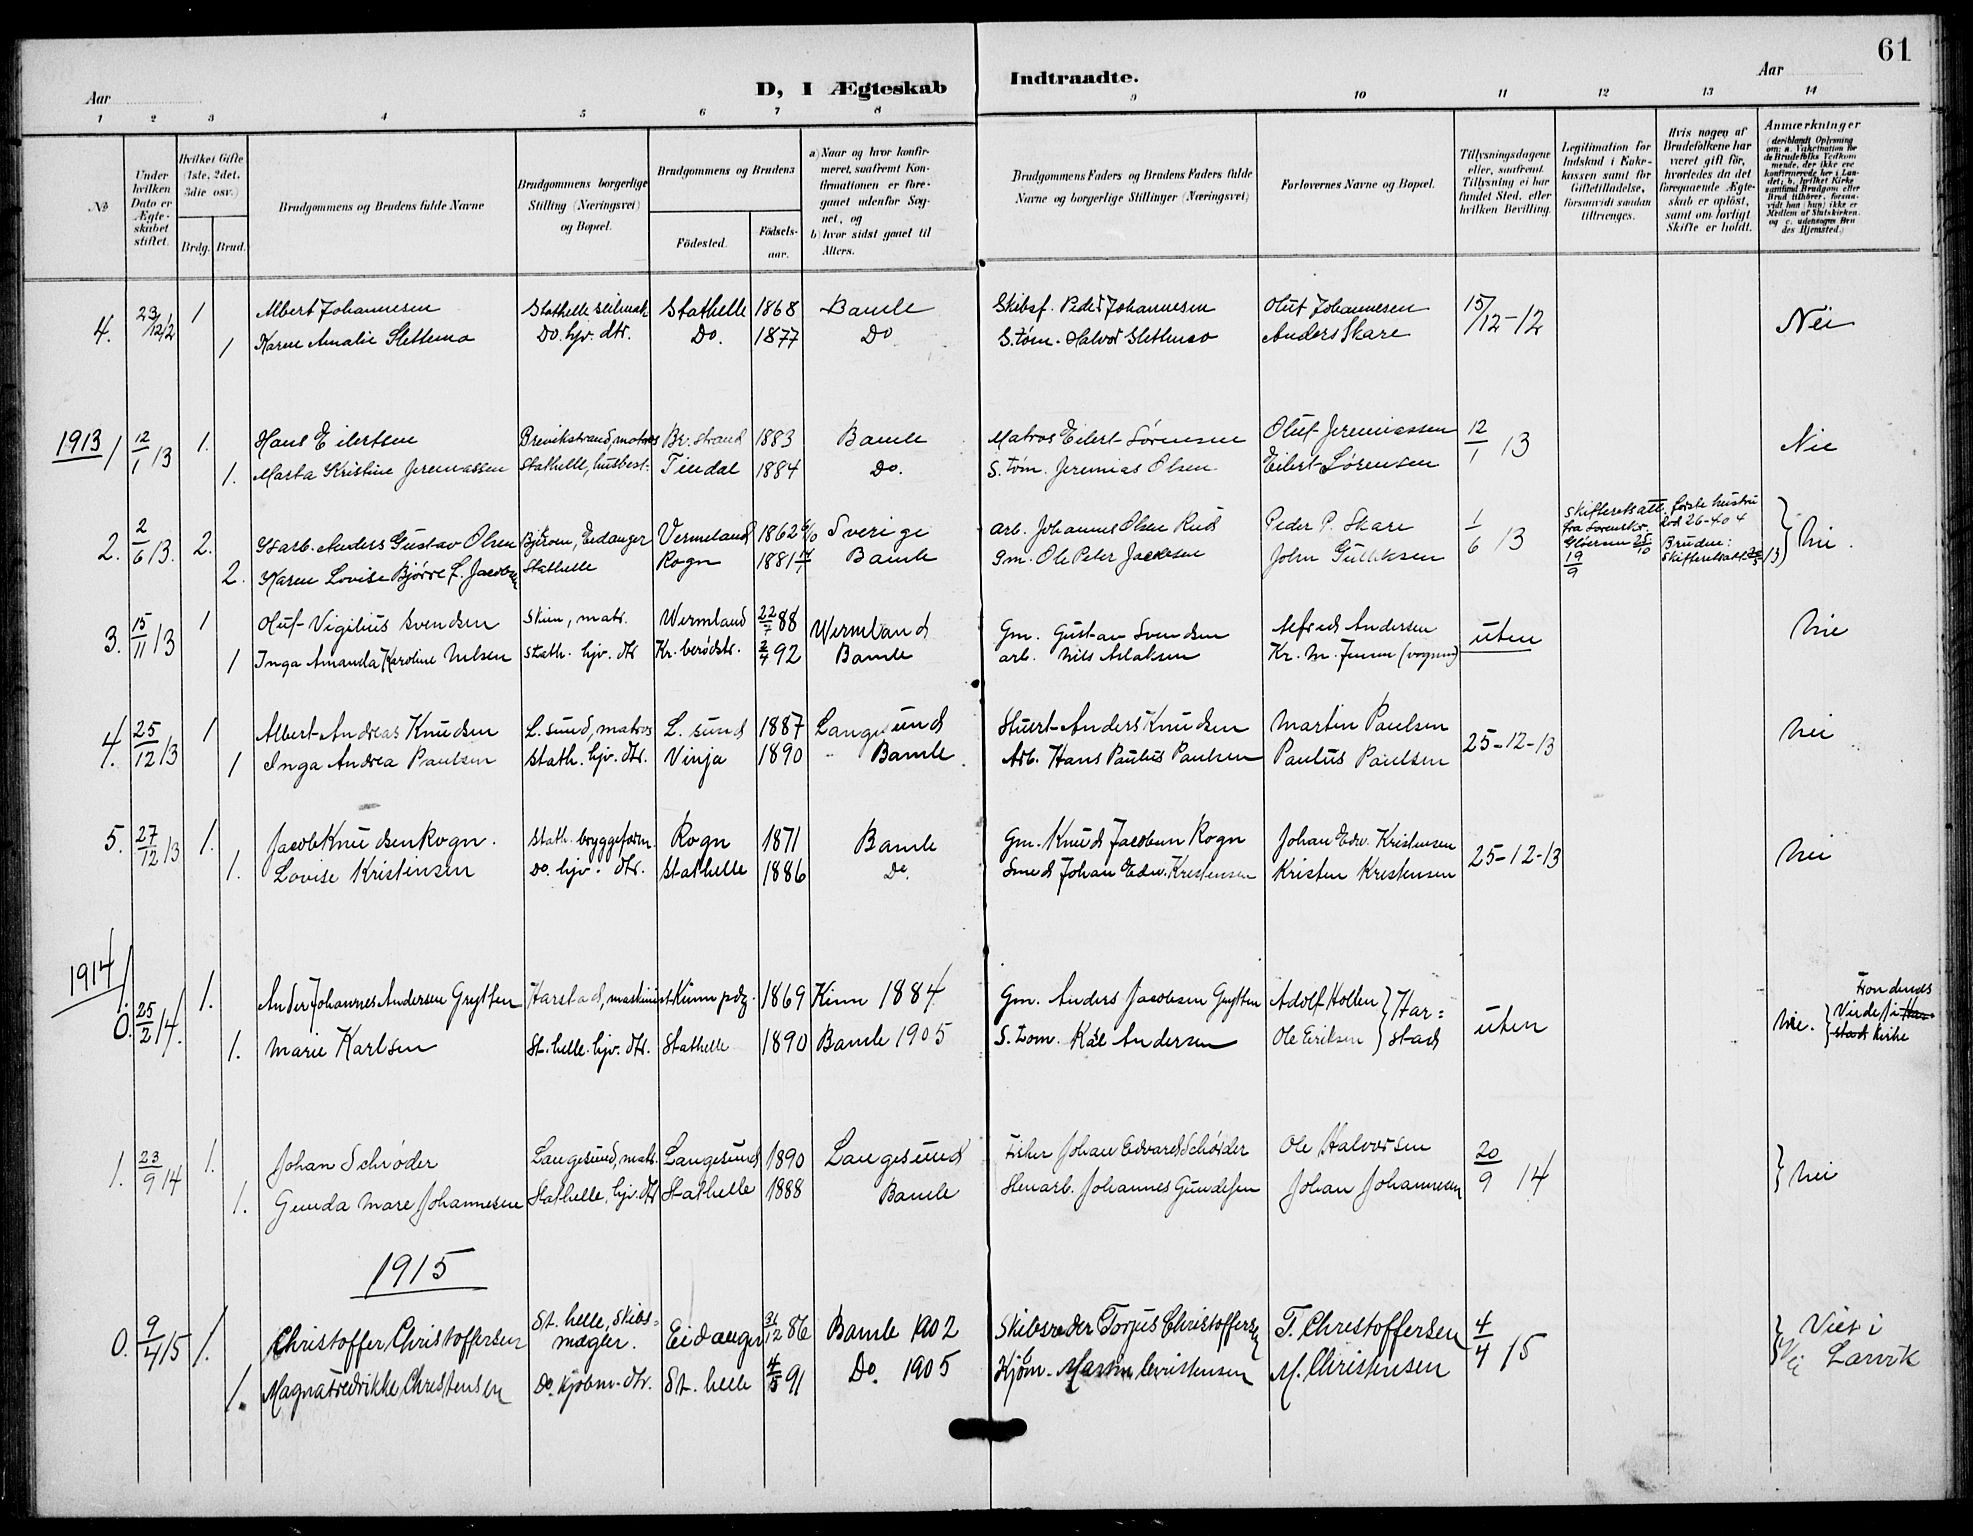 61
Aar
D, I Ægteskab Indtraadte.
Aar
1 2 3 4 5 6 7 8 9 10 11 12 13 14
№
Under hvilken Dato er Ægteskabet stiftet.
Hvilket Gifte (1ste, 2det, 3die osv.)
Brdg. Brud.
Brudgommens og Brudens fulde Navne
Brudgommens borgerlige Stilling (Næringsvei) og Bopæl.
Brudgommens og Brudens
Födested.
Födselsaar.
a) Naar og hvor konfirmeret, saafremt Konfirmationen er foregaaet udenfor Sognet, og
b) hvor sidst gaaet til Alters.
Brudgommens Faders og Brudens Faders fulde Navne og borgerlige Stillinger (Næringsvei)
Forlovernes Navne og Bopæl.
Tillysningsdagene eller, saafremt Tillysning ei har fundet Sted, efter hvilken Bevilling.
Legitimation for Indskud i Enkekassen samt for Giftetilladelse, forsaavidt saadan tiltrænges.
Hvis nogen af Brudefolkene har været gift før, hvorledes da det foregaaende Ægteskab er oplöst, samt om lovligt Skifte er holdt.
Anmærkninger
(deriblandt Oplysning om: a. Vakcination for de Brudefolks Vedkommende, der ikke ere konfirmerede her i Landet; b. hvilket Kirkesamfund Brudgom eller Brud tilhörer, forsaavidt han (hun) ikke er Medlem af Statskirken, og c. udensogns Brudes Hjemsted.)
4. 23/12/12 1 Albert Johannesen Stathelle seilmak Stathelle 1868 Bamle Skibsf. Peder Johannesen Oluf Johannesen 15/12-12 Nei
1 Karen Amalie Slettemo Do. hjv. dtr. Do. 1877 Do S.tøm. Halvor Slettemo Anders Skare
1913
1 12/1 13 1. Hans Eilertsen Brevikstrand, matros Br. strand 1883 Bamle Matros Eilert Sørensen Oluf Jeremiassen 12/1 13 Nei
1. Marta Kristine Jeremiassen Stathelle, husbest. Findal 1884 Do. S. tøm. Jeremias Olsen Eilert Sørensen
2. 2/6 13. 2. Anders Gustav Olsen Bjerøen, Eidanger Vermeland 1862 Sverige arb. Johannes Olsen Rud Peder P. Skare 1/6 13 Skifteretsatt. første hustru nei.
2. Karen Lovise Bjørre f. Jacobsen Stathelle Rogn 1881 Bamle Gm. Ole Peter Jacobsen John Gulliksen 19/9 Bruden: Skifteretsatt.
3. 15/11 13 1 Oluf Vigilius Svendsen Skien, matr. Wermland 22/7 88 Wermland Gm. Gustav Svendsen Alfred Andersen uten nei
1 Inga Amanda Karoline Nilsen Stath. hjv. dtr Kr. berødstr. 2/4 92 Bamle arb. Nils Aslaksen Kr. M. Jensen
4. 25/12 13 1 Albert Andreas Knudsen L. sund, matros L. sund 1887 Langesund Stuert Anders Knudsen Martin Paulsen 25-12-13 nei
1 Inga Andrea Paulsen Stath. hjv. dtr. Vinja 1890 Bamle. Arb. Hans Paulus Paulsen Paulus Paulsen
5. 27/12 13 1. Jacob Knudsen Rogn. Stath. bryggeform. Rogn 1871 Bamle Gm. Knud Jacobsen Rogn Johan Edv. Kristensen 25-12-13 nei
1. Lovise Kristensen Do. hjv. dtr. Stathelle 1886 Do. Smed Johan Edv. Kristensen Kristen Kristensen
1914
0. 25/2 14. 1. Ander Johannes Andersen Grytten Harstad, maskinist Kinn pdg. 1869 Kinn 1884 Gm. Anders Jacobsen Grytten Adolf Holten } Har= uten nei. { Viede i Trondenæs Harstad kirke
1. Marie Karlsen St. helle hjv. dtr. Stathelle 1890 Bamle 1905 S. tom. Karl Andersen Ole Eriksen } stad
1. 23/9 14 1. Johan Schrøder Langesund, matr. Langesund 1890 Langesund Fisker Johan Edvard Schrøder Ole Halvorsen 20/9 14 } nei
1. Gunda Mare Johannesen Stathelle, hjv. dtr Stathelle 1888 Bamle Stenarb. Johannes Gundesen Johan Johannesen
1915
0. 9/4 15 1. Christoffer Christoffersen St. helle, Skibs=mægler. Eidanger 31/12 86 Bamle 1902 Skibsreder Torjus Christoffersen T. Christoffersen 4/4 15 } Viet i Larvik
1. Magna Fredrikke Christensen Do. kjøbm. dtr. St. helle 4/5 91 Do. 1905 Kjøbm. Martin Christensen M. Christensen Nei